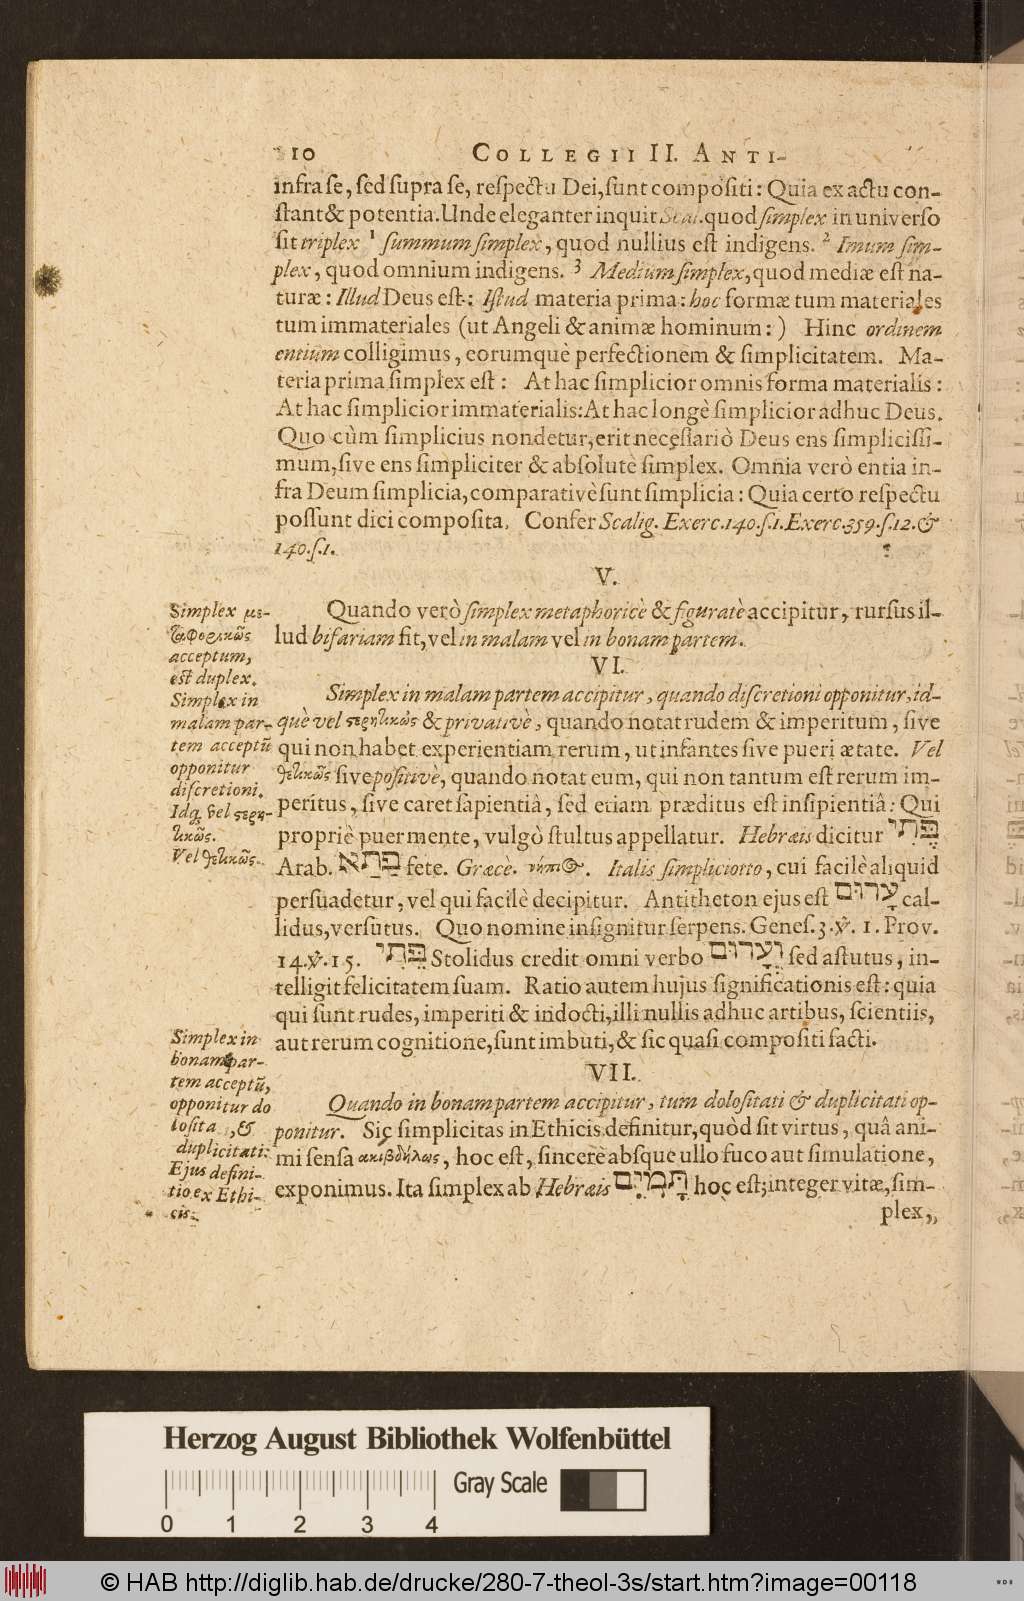 10 COLLEGII II. ANTI-
infra se, sed supra se, respectu Dei, sunt compositi: Quia ex actu con-
stant & potentia. Unde eleganter inquit Scal. quod simplex in universo
sit triplex 1 summum simplex, quod nullius est indigens. 2 Imum sim-
plex, quod omnium indigens. 3 Medium simplex, quod mediæ est na-
turæ: Illud Deus est: Istud materia prima: hoc formæ tum materiales
tum immateriales (ut Angeli & animæ hominum:) Hinc ordinem
entium colligimus, eorumquè perfectionem & simplicitatem. Ma-
teria prima simplex est: At hac simplicior omnis forma materialis:
At hac simplicior immaterialis: At hac longè simplicior adhuc Deus.
Quo cùm simplicius non detur, erit necessariò Deus ens simplicissi-
mum, sive ens simpliciter & absolutè simplex. Omnia verò entia in-
fra Deum simplicia, comparativè sunt simplicia: Quia certo respectu
possunt dici composita. Confer Scalig. Exerc. 140. s. 1. Exerc. 359. s. 12. &
140. s. 1.
V.
Quando verò simplex metaphoricè & figuratè accipitur, rursus il-
lud bifariam fit, vel in malam vel in bonam partem.
Simplex με-
ταφορικῶς
acceptum,
est duplex.
VI.
Simplex in malam partem accipitur, quando discretioni opponitur, id-
què vel στερητικῶς & privativè, quando notat rudem & imperitum, sive
qui non habet experientiam rerum, ut infantes sive pueri ætate. Vel
θετικῶς sive positivè, quando notat eum, qui non tantum est rerum im-
peritus, sive caret sapientiâ, sed etiam præditus est insipientiâ: Qui
propriè puer mente, vulgò stultus appellatur. Hebræis dicitur פֶּתִי
Arab. פַתַא fete. Græcè. νήπιος. Italis simpliciotto, cui facilè aliquid
persuadetur, vel qui facilè decipitur. Antitheton ejus est עָרוּם cal-
lidus, versutus. Quo nomine insignitur serpens. Genes. 3. ℣. 1. Prov.
14. ℣. 15. פֶּתִי Stolidus credit omni verbo וְעָרוּם sed astutus, in-
telligit felicitatem suam. Ratio autem hujus significationis est: quia
qui sunt rudes, imperiti & indocti, illi nullis adhuc artibus, scientiis,
aut rerum cognitione, sunt imbuti, & sic quasi compositi facti.
Simplex in
malam par-
tem acceptũ
opponitur
discretioni.
Idq; vel στερη-
τικῶς.
Vel θετικῶς.
VII.
Quando in bonam partem accipitur, tum dolositati & duplicitati op-
ponitur. Sic simplicitas in Ethicis definitur, quòd sit virtus, quâ ani-
mi sensa ακιβδήλως, hoc est, sincerè absque ullo fuco aut simulatione,
exponimus. Ita simplex ab Hebræis תָּמִים hoc est; integer vitæ, sim-
plex,
Simplex in
bonam par-
tem acceptũ,
opponitur do
losita , &
duplicitati:
Ejus defini-
tio ex Ethi-
cis.
Herzog August Bibliothek Wolfenbüttel
Gray Scale
0 1 2 3 4
© HAB http://diglib.hab.de/drucke/280-7-theol-3s/start.htm?image=00118